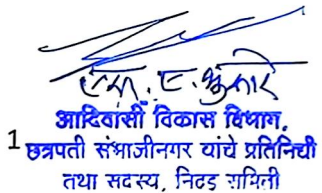 एम. ए. कुमारे
आदिवासी विकास विभाग,
1 छत्रपती संभाजीनगर यांचे प्रतिनिधी
तथा सदस्य, निवड समिती